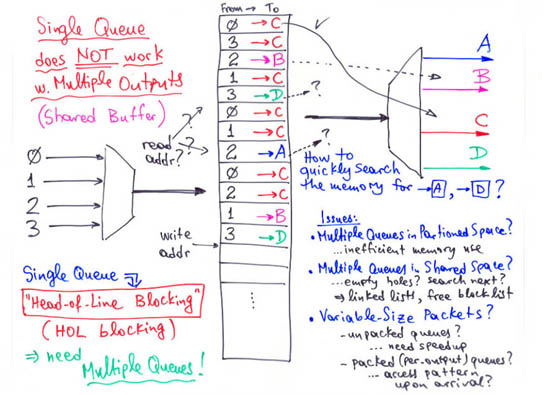 Single Queue
does NOT work
w. Multiple Outputs
(Shared Buffer)
From → To
0 → C
3 → C
2 → B
1 → C
3 → D
0 → C
1 → C
2 → A
0 → C
2 → C
1 → B
3 → D
?
?
?
read
addr?
?
0
1
2
3
write
addr
A
B
C
D
How to
quickly search
the memory for → A, → D ?
Single Queue ⇒
"Head-of-Line Blocking"
(HOL blocking)
⇒ need
Multiple Queues!
Issues:
• Multiple Queues in Partioned Space?
...inefficient memory use
• Multiple Queues in Shared Space?
...empty holes? search next?
⇒ linked lists, free block list
• Variable-Size Packets?
- unpacked queues?
... need speedup
- packed (per-output) queues?
... access pattern
upon arrival?